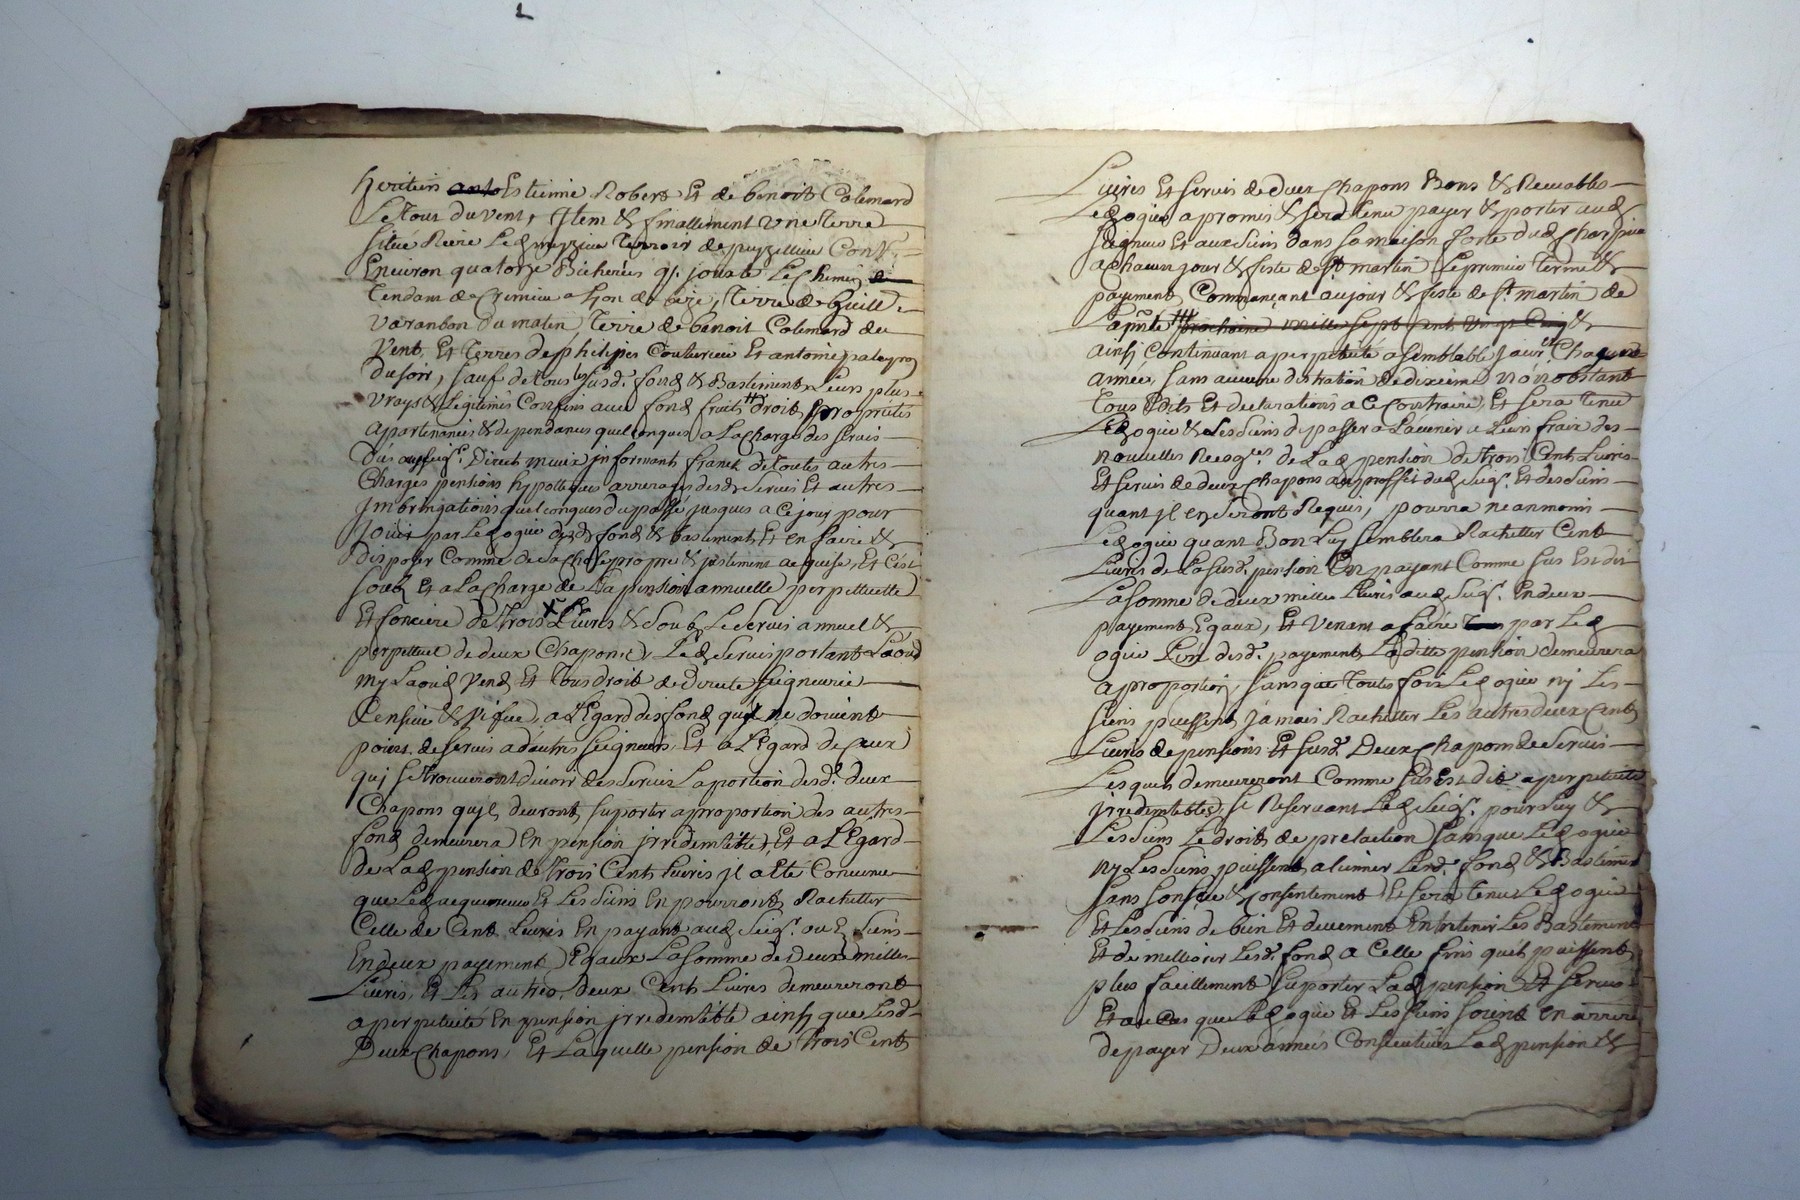 heritiers Estienne Robert Et de benoit Colemard
Le Tout du vent, Item & finallement une terre
située Riere Led. Terroir de puzzellieu Cont.
Environ quatorze Bicherées qj. jouxte Le Chemin
Tendant de Cremieu a Lion de bize, Terre de Guill.
Varanbon du matin, Terre de benoit Colemard du
Vent, Et Terres de philipes Couturieu Et antoine
du soir, sauf de tous les susd. fond & Bastiments Leurs plus
vrays & Legitimes Confins avec fond fruits droits proprietés
apartenances & dependances quelconques a La Charge des servis
dus aux seigr. Direct mieux informants franck de toutes autres
Charges pensions hypotteques arrerages desd. servis Et autres
Imbringations quelconques du passé jusques a Ce jour pour
Jouir par Led. ogier desd. fond & bastiments Et en faire &
disposer Comme de sa Chose propre & justement acquise, Et C'est
soub Et a La Charge de La pension annuelle perpettuelle
Et fonciere de trois Livres & soub Le servis annuel &
perpettuel de deux Chapons, Led. servis portant Laoud
my Laoud vend Et Tous droit de directe seigneurie
Censive & , a L'Egard des fond quj ne doivent
point de servis a d'autres seigneurs, Et a L'Egard de Ceux
quj se trouveront devoir des servis La portion desd. deux
Chapons qujls devront suporter a proportion des autres
fond demeurera En pension jrredemtible, Et a L'Egard
de Lad. pension de trois Cents Livres jl a été Convenu
que Led. acquereur Et Les siens En pourront Rachetter
Celle de Cent Livres En payant aud. seigr. ou Es siens
En deux payements Egaux La somme de Deux milles
Livres, Et Les autres deux Cents Livres demeureront
a perpetuité En pension jrredemtible ainsi que Lesd.
Deux Chapons, Et Laquelle pension de trois Cents
Livres Et servis de deux Chapons Bons & Recevables
Led. ogier a promis & sera tenu payer & porter aud.
seigneur Et aux siens dans sa maison forte dud.
a Chacun jour & feste de St. martin, Le premier Terme &
payement Commançant au jour & feste de St. martin de
prochaine mille sept Cent vingt Cinq &
ainsi Continuant a perpetuité a semblable jour Chaque
année, sans aucune distration de dixieme nonobstant
tous Edits Et declarations a Ce Contraire, Et sera tenu
Led. ogier & Les siens de passer a L'avenir a Leurs frais des
nouvelles de Lad. pension de trois Cent Livres
Et servis de deux Chapons au proffit dud. seigr. Et des siens
quant jl en seront Requis, pourra neanmoins
Led. ogier quant Bon Luy semblera Rachetter Cent
Livres de La susd. pension En payant Comme sus Est dit
La somme de deux milles Livres aud. seigr. En deux
payements Egaux, Et venant a faire par Led.
ogier L'un desd. payements La ditte pension demeurera
a proportion, sans que toutes fois Led. ogier nj Les
siens puissent jamais Rachetter Les autres deux Cents
Livres de pensions Et susd. Deux Chapons de servis
Lesquels demeureront Comme sus Est dit a perpetuité
jrredemtibles, se Reservant Led. seigr. pour Luy &
Les siens Le droit de prelaction sans que Led. ogier
ny Les siens puissent alienner Lesd. fond & Bastiment
sans son sçu & Consentement Et sera tenu Led. ogier
Et Les siens de bien Et deuement Entretenir Les Bastiment
Et de milliorer Lesd. fond a Celle fins qu'il puissent
plus facillement suporter Lad. pension Et servis
Et au Cas que Led. ogier Et Les siens soient en arriere
de payer Deux années Consecutives Lad. pension &